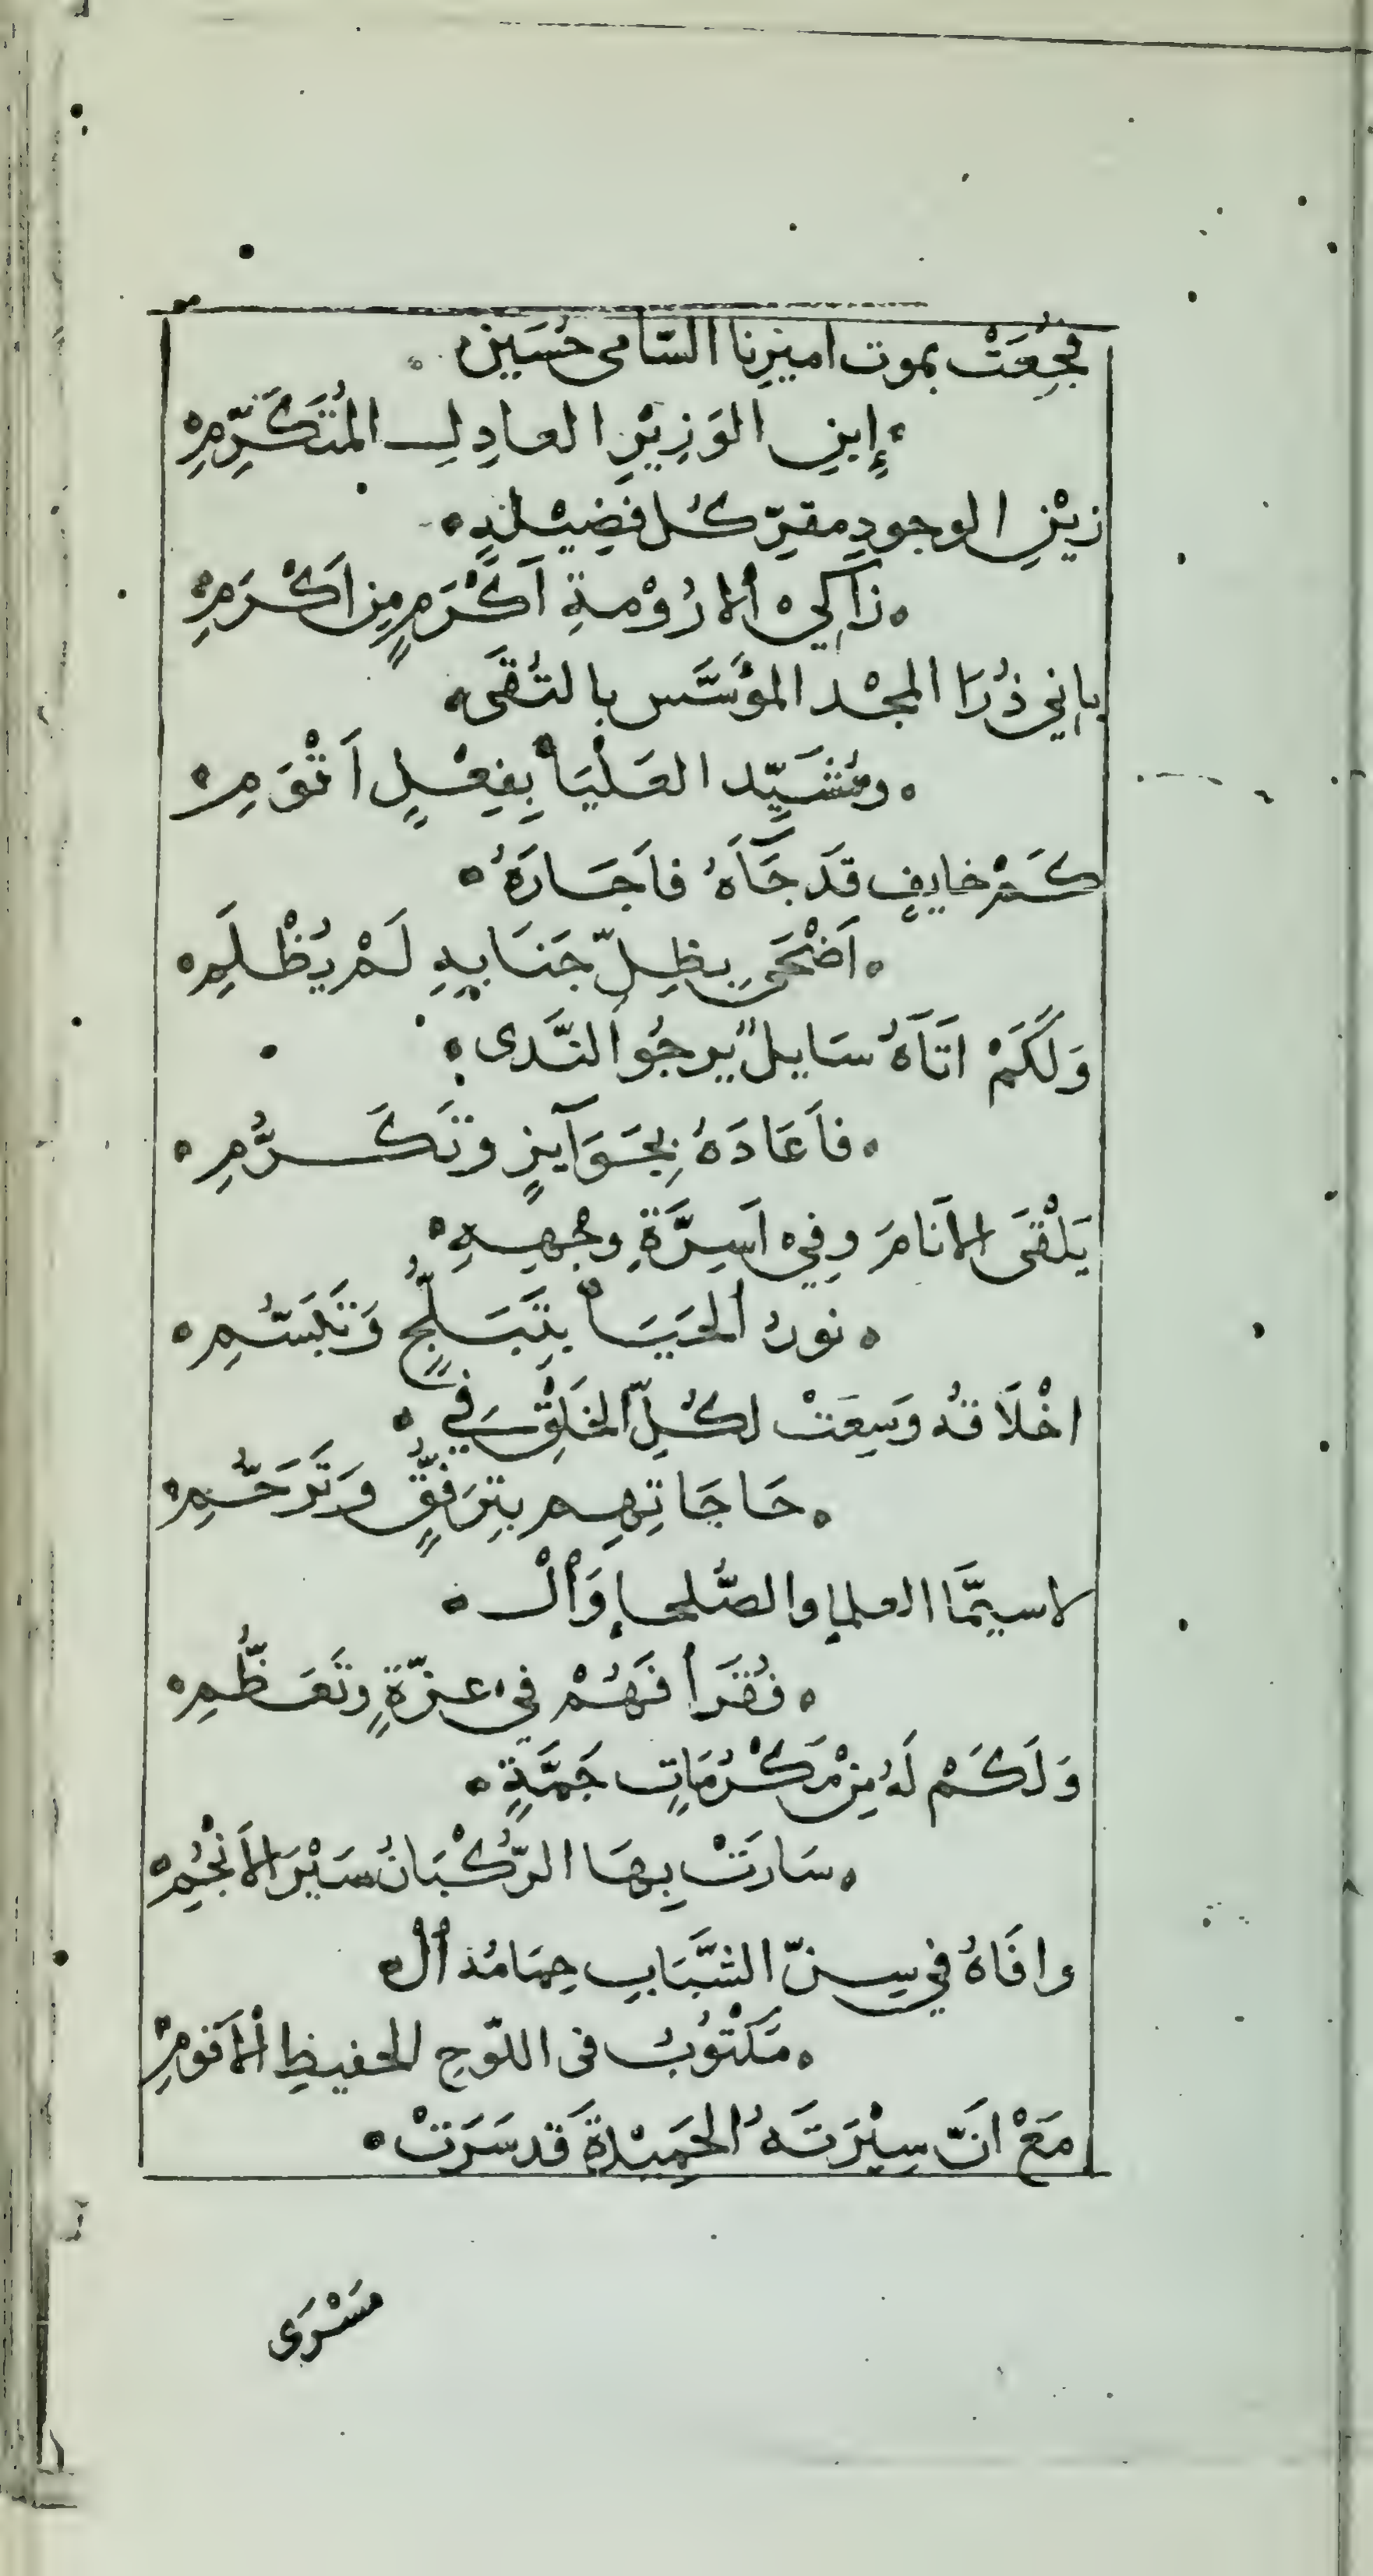 فُجِعَتْ بموت اميْرِنا السّامى حُسَيْن ۰
۰ إِبنِ الوَزِيْرِ العادِلِ المُتَكَرِّمِ ۰
زيْنِ الوجودِ مقرِّ كُل فضِيْلةٍ ۰
۰ زَاكِيْ اْلارُوْمةِ اَكْرَمٍ مِن اَكْرَمِ ۰
بانِي ذُرَا المجْد المؤَسَّس بالتُقَى ۰
۰ ومُشَيِّد العَلْيَأْ بِفِعْلٍ اَقْوَمِ ۰
كَمْ خايفٍ قَد جَآَهُ فاَجَارَهُ ۰
۰ اَضْحَى بِظِلِّ جَنَابِهِ لَمْ يُظْلَمِ ۰
وَلَكَمْ اَتَاَهُ سَايلٌ يرجُو النَّدى ۰
۰ فاَعَادَهُ بِجَوَآيزٍ وتَكَرُّمِ ۰
يَلْقَى الاَنامَ وفِيْ اَسِرَّةِ وجْهِهِ ۰
۰ نورُ اْلحَيَأْ بِتَبَلُّجٍ وَتَبَسُّمِ ۰
اخْلَاقهُ وَسِعَتْ لكُلِّ الخَلْقِ في ۰
۰ حَاجَاتِهِم بتِرَفُّقٍ وَتَرَحُّمِ ۰
لاسيّمَا العلماءِ والصُّلحاءِ وَاْلْ ۰
۰ فُقَرَأ فَهُمْ في عزّةٍ وتَعَظُّمِ ۰
وَلَكَمْ لَهُ مِنْ مَكْرُمَاتٍ جَمَّةٍ ۰
۰ سَارَتْ بِهَا الرُّكْبَانُ سَيْرَ الاَنْجُمِ ۰
وافَاهُ في سِنّ الشَّبَابِ حِمَامُهُ اْلْ ۰
۰ مَكْتُوْبُ فى اللّوحِ الحفيظِ اْلاَقومِ ۰
مَعْ انَّ سِيْرَتَهُ الحَمِيْدةَ قَد سَرَتْ ۰
مَسْرَى